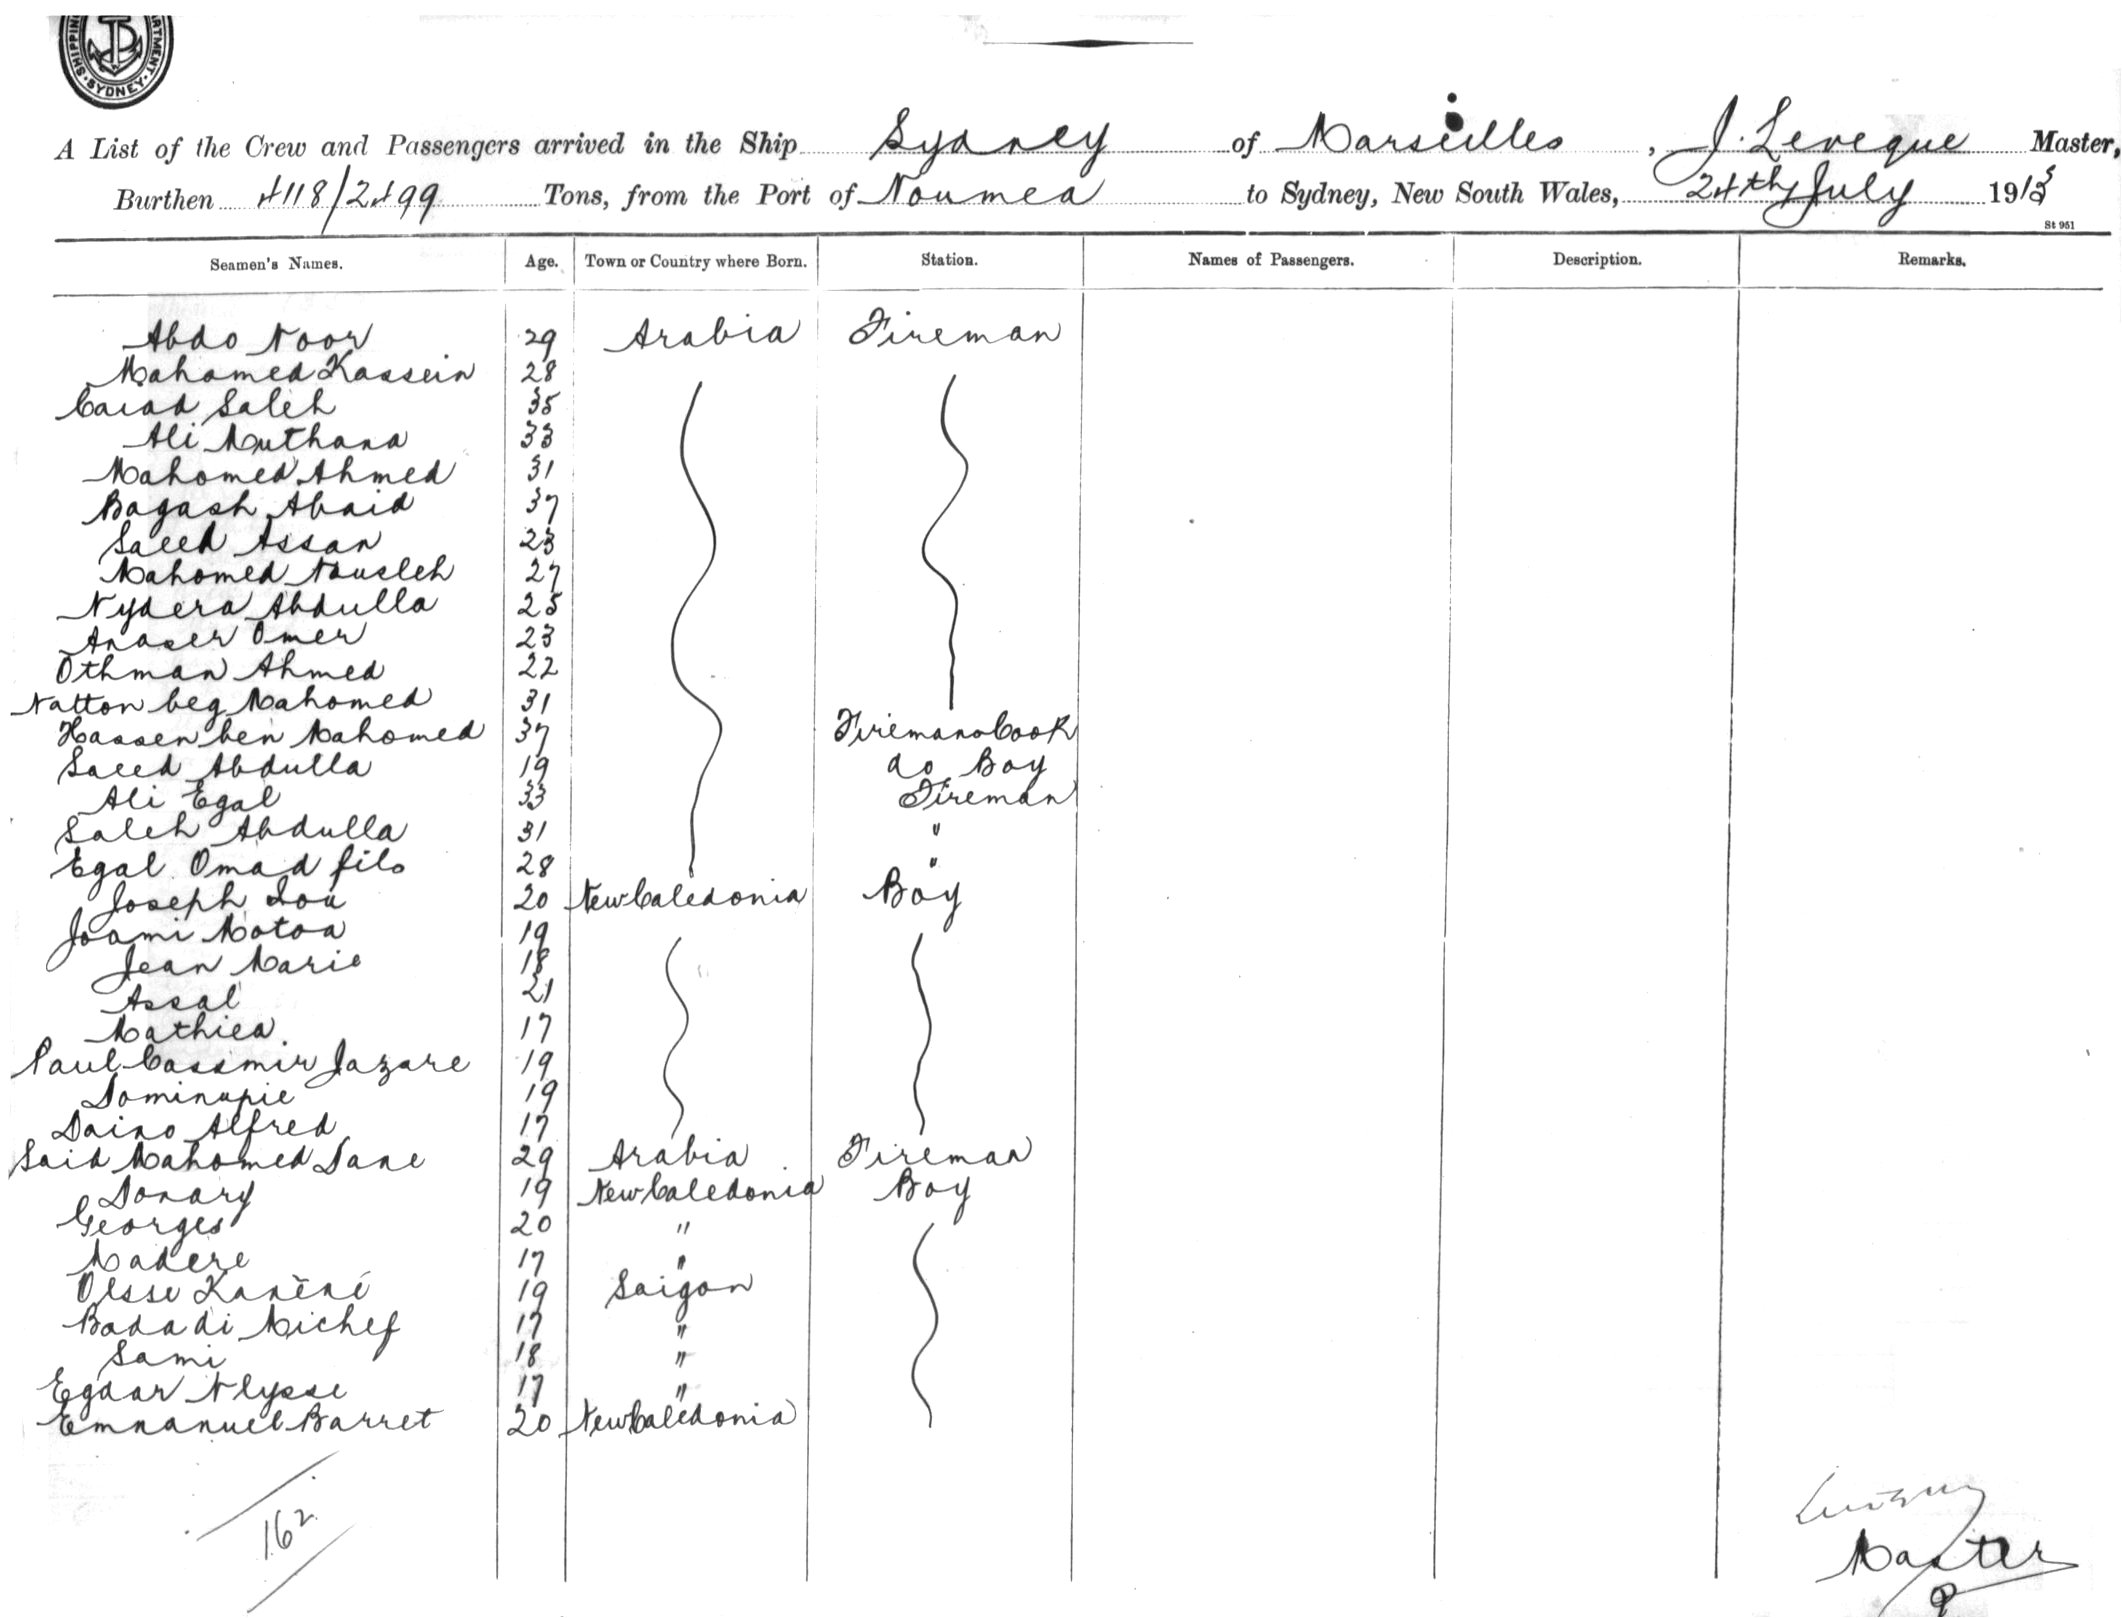 SHIPPING DEPARTMENT · SYDNEY
A List of the Crew and Passengers arrived in the Ship Sydney of Marseilles, J. Leveque Master,
Burthen 4118/2499 Tons, from the Port of Noumea to Sydney, New South Wales, 24th July 1913
St 951
Seamen's Names. Age. Town or Country where Born. Station. Names of Passengers. Description. Remarks.
Abdo Noor 29 Arabia Fireman
Mahomed Kassein 28
Caiad Saleh 35
Ali Muthana 33
Mahomed Ahmed 31
Bagash Abaid 37
Saeed Assan 23
Mahomed Nausleh 27
Nydera Abdulla 25
Anaser Omer 23
Othman Ahmed 22
Natton beg Mahomed 31
Hassen ben Mahomed 37 Firemans Cook
Saeed Abdulla 19 do Boy
Ali Egal 33 Fireman
Saleh Abdulla 31 "
Egal Omad fils 28 "
Joseph Lou 20 New Caledonia Boy
Joami Motoa 19
Jean Marie 18
Assal 21
Mathiea 17
Paul Cassmir Jazare 19
Dominupie 19
Daino Alfred 17
Said Mahomed Dane 29 Arabia Fireman
Donary 19 New Caledonia Boy
Georges 20 "
Madere 17 "
Olsse Kanéné 19 Saigon
Badadi Michef 17 "
Sami 18 "
Egdar Nlysse 17 "
Emnanuel Barret 20 New Caledonia
162
Master